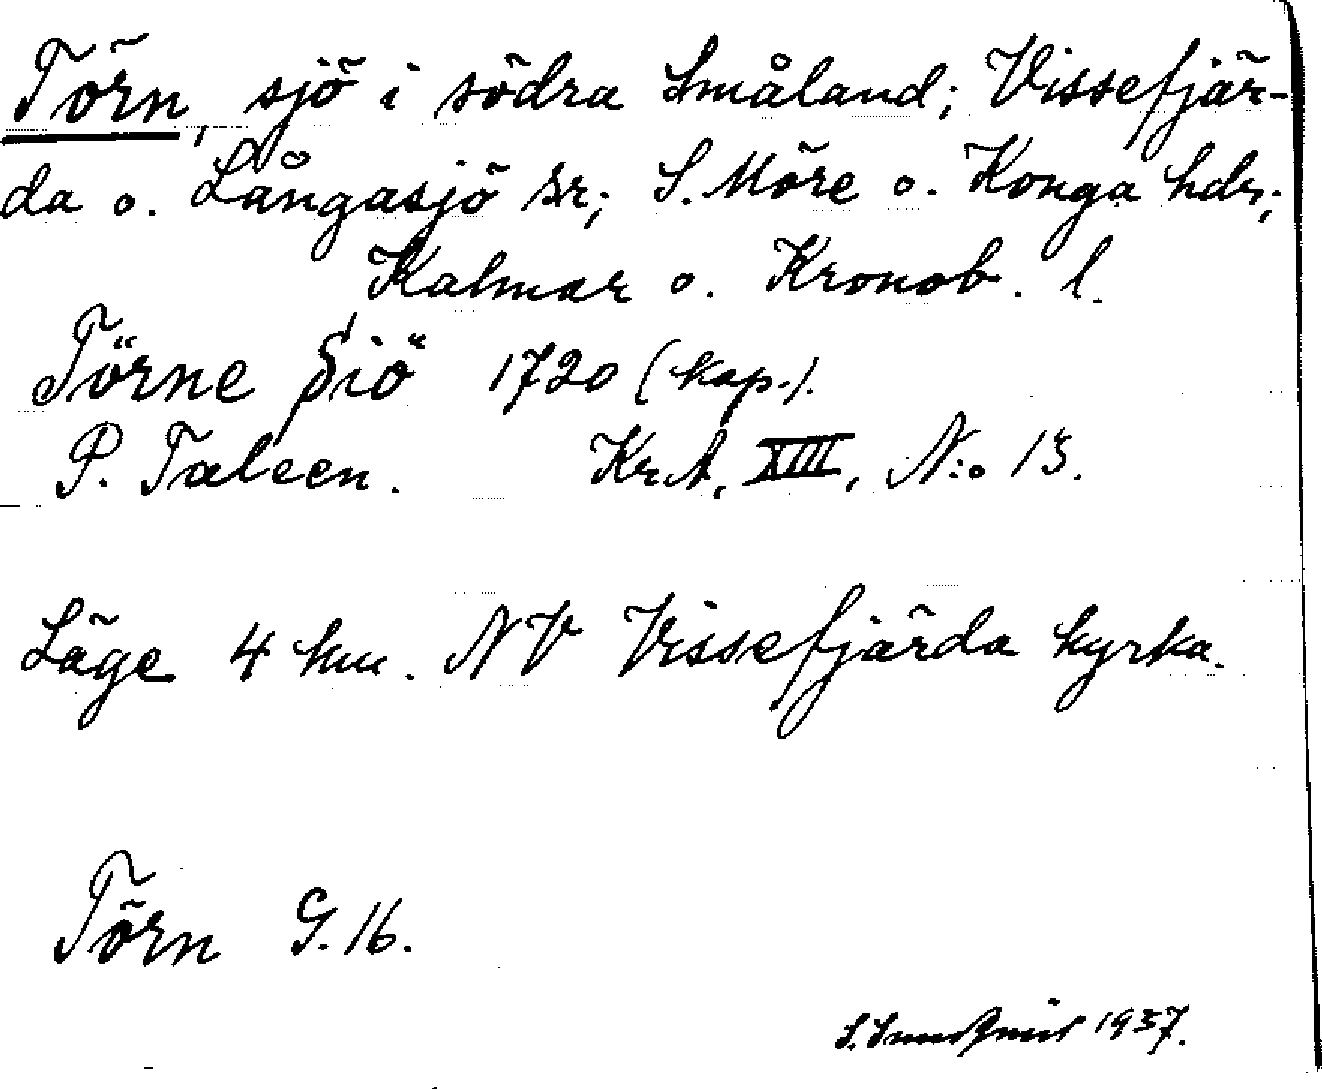 Törn, sjö i södra Småland; Vissefjär-
da o. Långasjö sr; S. Möre o. Konga hdr;
Kalmar o. Kronob. l.
Törne Siö 1720 (kop.).
P. Taleen. Kr.A. XIII, N:o 13.
Läge 4 km. NV Vissefjärda kyrka.
Törn G. 16.
S. 1937.